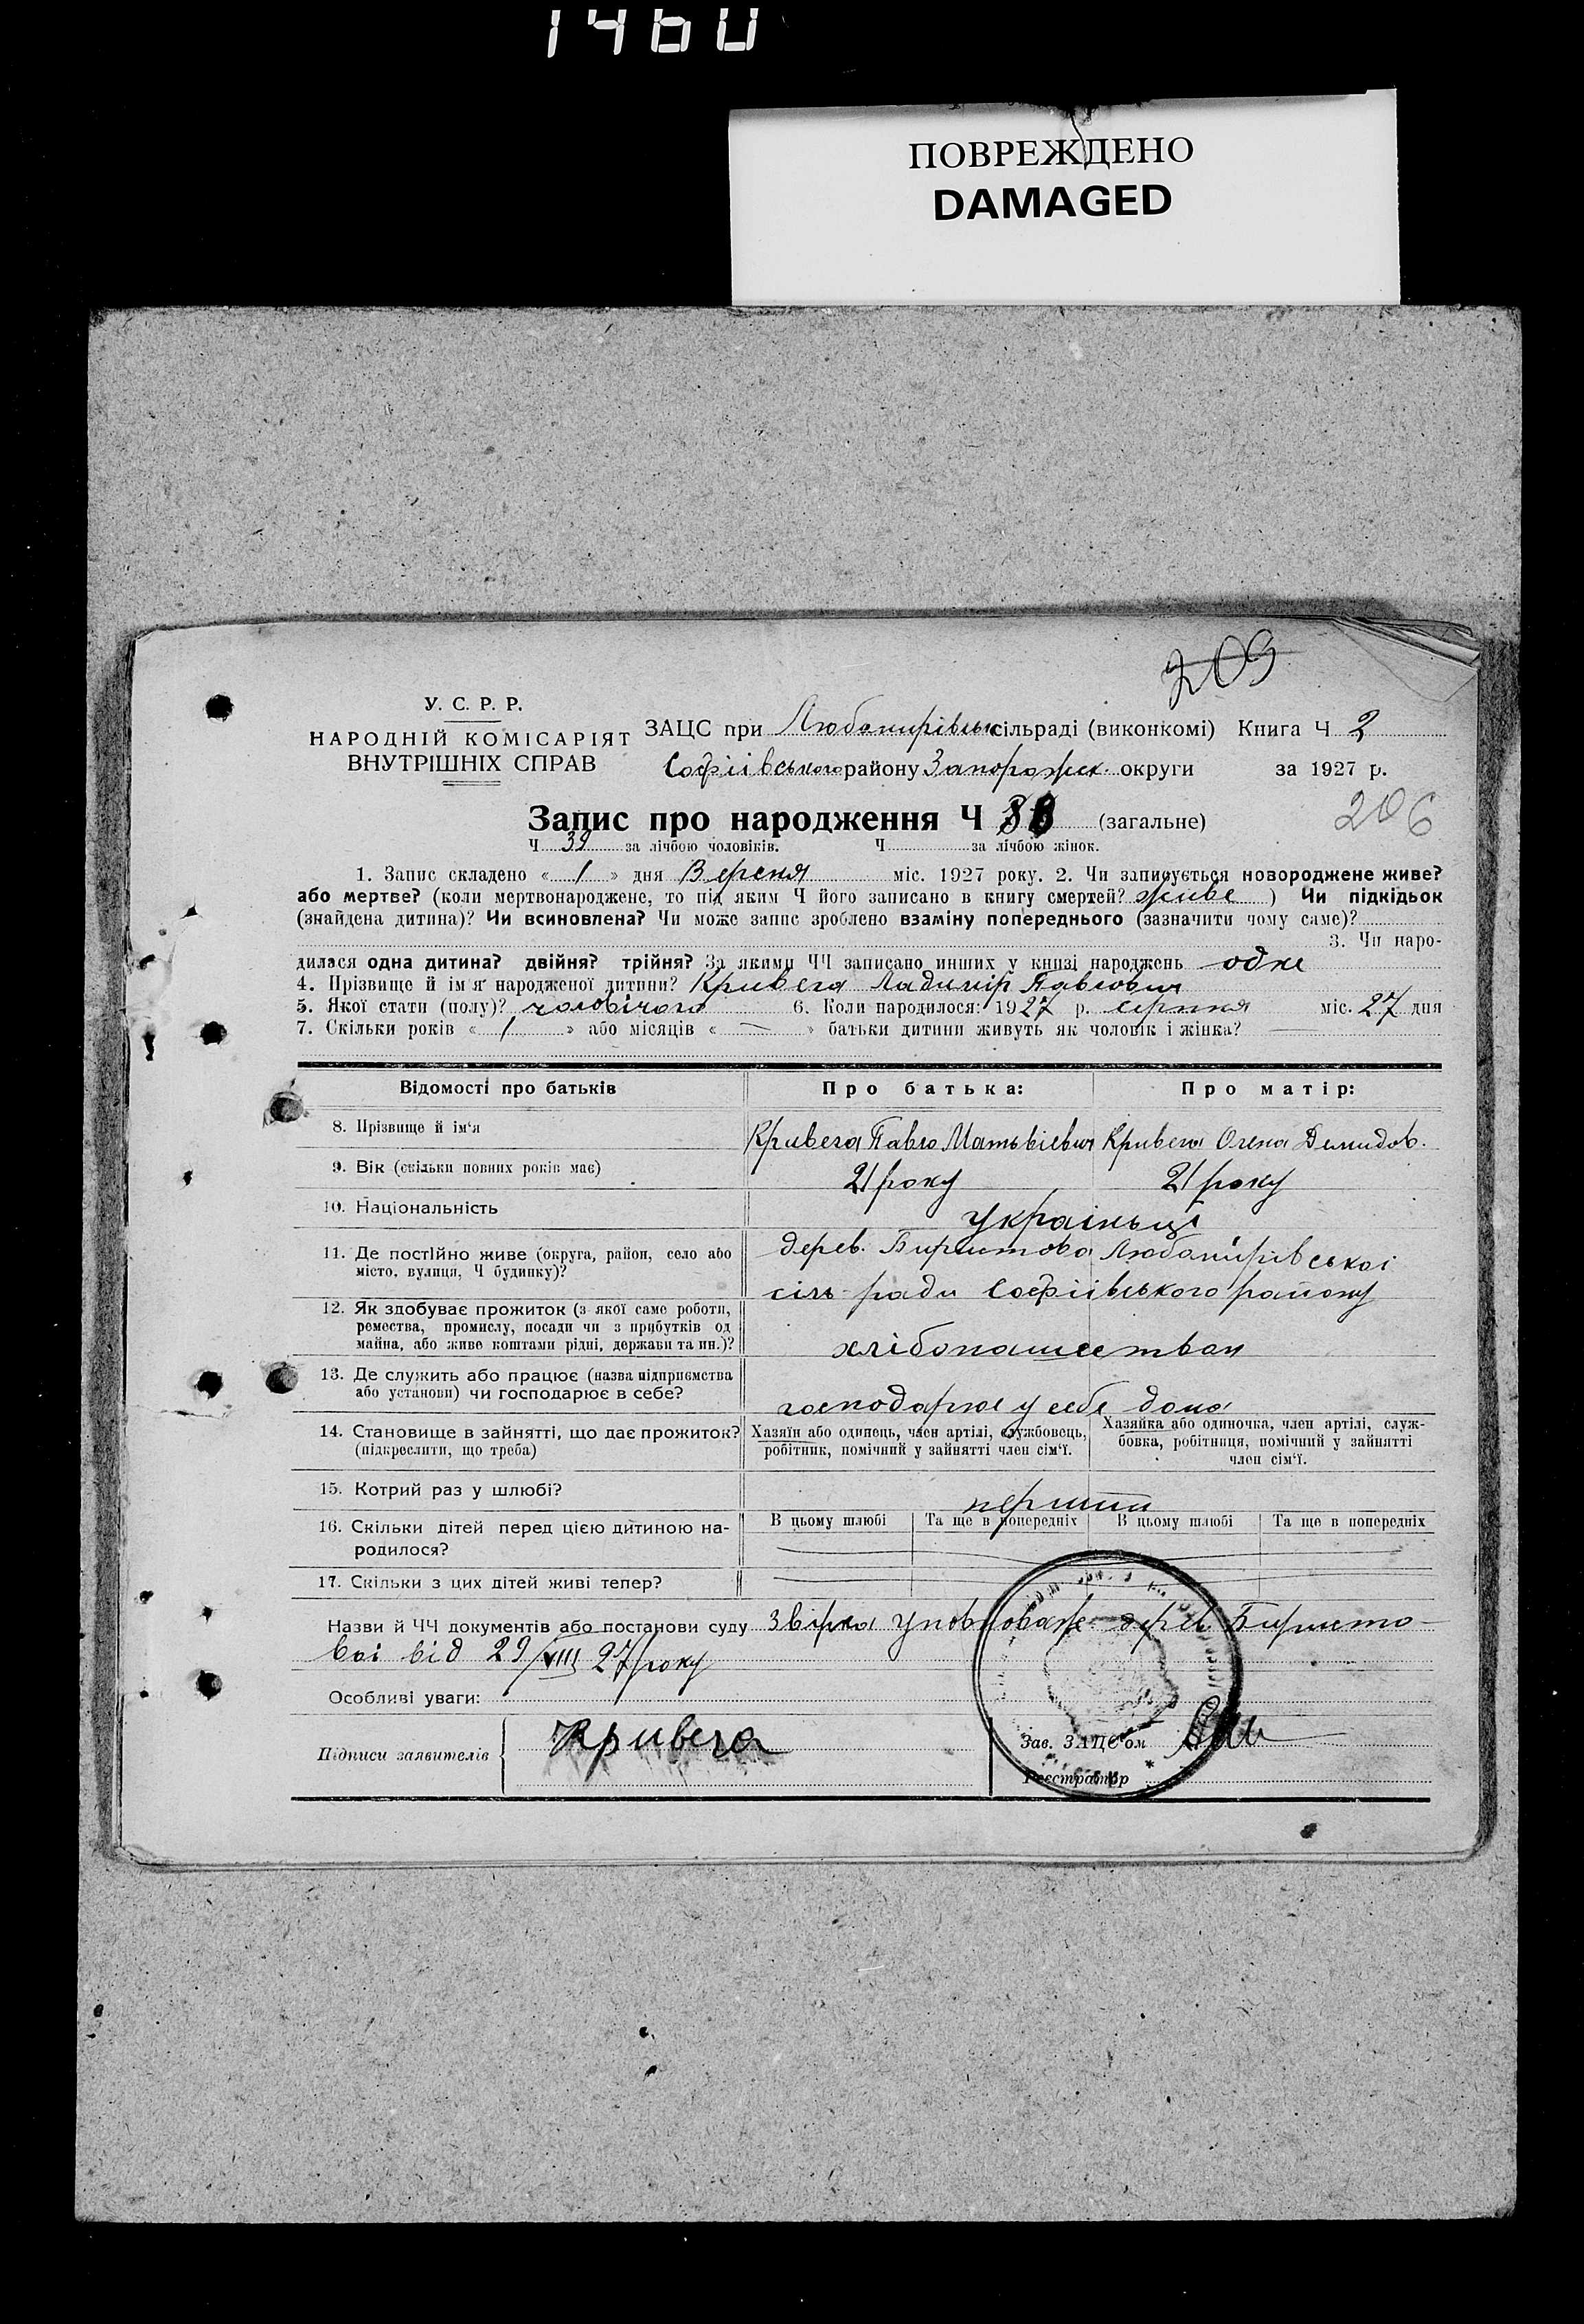 1460
ПОВРЕЖДЕНО
DAMAGED
209
У. С. Р. Р.
НАРОДНІЙ КОМІСАРІЯТ
ВНУТРІШНІХ СПРАВ
ЗАЦС при Любомирівськ сільраді (виконкомі) Книга Ч 2
Софіівського району Запорожск. округи за 1927 р.
206
Запис про народження Ч (загальне)
Ч 39 за лічбою чоловіків. Ч за лічбою жінок.
1. Запис складено « 1 » дня Вересня міс. 1927 року. 2. Чи записується новороджене живе?
або мертве? (коли мертвонароджене, то під яким Ч його записано в книгу смертей? живе ) Чи підкідьок
(знайдена дитина)? Чи всиновлена? Чи може запис зроблено взаміну попереднього (зазначити чому саме)?
3. Чи наро-
дилася одна дитина? двійня? трійня? За якими ЧЧ записано инших у книзі народжень одне
4. Прізвище й ім'я народженої дитини? Кривега Ладимір Павлович
5. Якої стати (полу)? чоловічого 6. Коли народилося: 1927 р. серпня міс. 27 дня
7. Скільки років « 1 » або місяців « — » батьки дитини живуть як чоловік і жінка?
Відомості про батьків Про батька: Про матір:
8. Прізвище й ім'я Кривега Павло Матьвіевич Кривега Олена Демидов.
9. Вік (скільки повних років має) 21 року 21 року
10. Національність украіньці
11. Де постійно живе (округа, район, село або місто, вулиця, Ч будинку)? дерев. Любомирівськоі
сіль-ради Софіівського району
12. Як здобуває прожиток (з якої саме роботи,
ремества, промислу, посади чи з прибутків од
майна, або живе коштами рідні, держави та ин.)? хлібопашеством
13. Де служить або працює (назва підприємства
або установи) чи господарює в себе? господарює у себе дома
14. Становище в зайнятті, що дає прожиток?
(підкреслити, що треба)
Хазяїн або одинець, член артілі, службовець,
робітник, помічний у зайнятті член сім'ї.
Хазяйка або одиночка, член артілі, служ-
бовка, робітниця, помічний у зайнятті
член сім'ї.
15. Котрий раз у шлюбі? перший
16. Скільки дітей перед цією дитиною на-
родилося?
В цьому шлюбі Та ще в попередніх В цьому шлюбі Та ще в попередніх
17. Скільки з цих дітей живі тепер?
Назви й ЧЧ документів або постанови суду Звірка уповноваж. дерев.
воі від 29/VIII 27 року
Особливі уваги:
Підписи заявителів Кривега
Зав. ЗАЦС'ом
Реєстратор